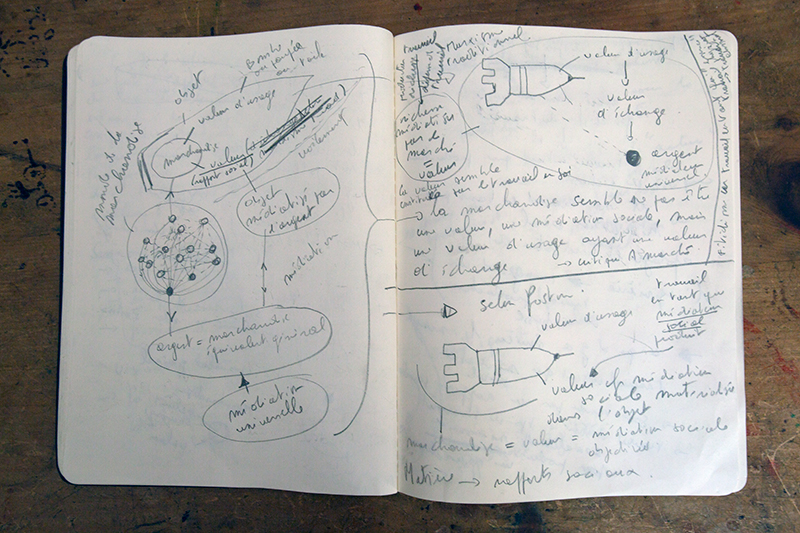 objet
valeur d'usage
monde de la
marchandise
marchandise
valeur
(rapport social)
objet
médiatisé par
l'argent
médiation
argent = marchandise
équivalent général
médiation
universelle
Marxisme
traditionnel
richesse
médiatisée
par le
marché
= valeur
valeur d'usage
valeur
d'échange
argent
médiateur
universel
la valeur semble
constituée par le travail en soi
→ la marchandise semble ne pas être
une valeur, une médiation sociale, mais
une valeur d'usage ayant une valeur
d'échange → critique du marché
selon Postone
valeur d'usage
travail
en tant que
médiation
sociale
produit
valeur cf médiation
sociale matérialisée
dans l'objet
marchandise = valeur = médiation sociale
objectivée
Matière → rapports sociaux